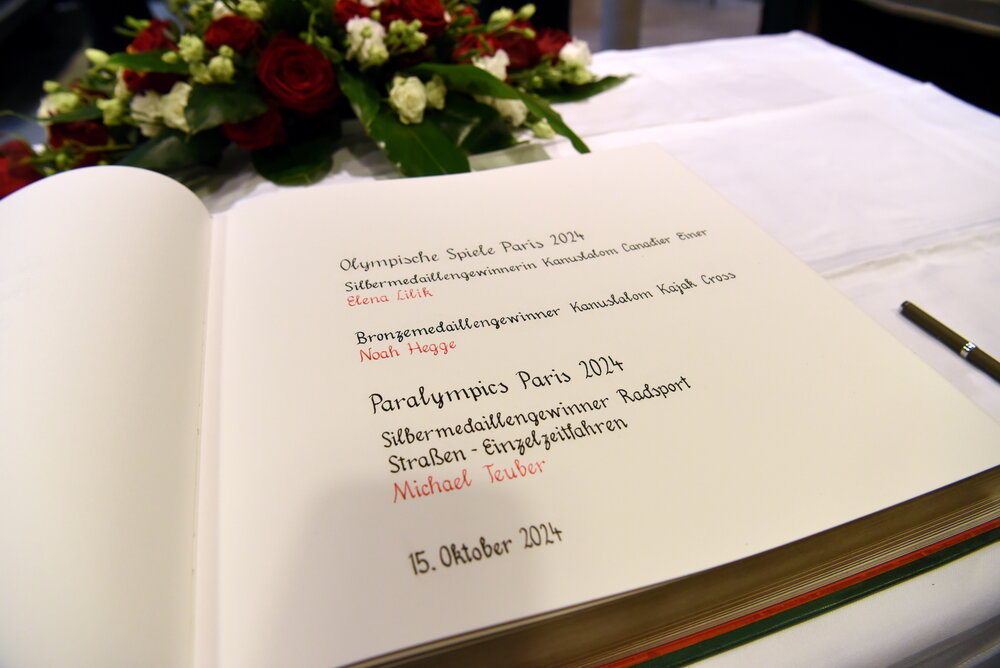 Olympische Spiele Paris 2024
Silbermedaillengewinnerin Kanuslalom Canadier Einer
Elena Lilik
Bronzemedaillengewinner Kanuslalom Kajak Cross
Noah Hegge
Paralympics Paris 2024
Silbermedaillengewinner Radsport
Straßen - Einzelzeitfahren
Michael Teuber
15. Oktober 2024